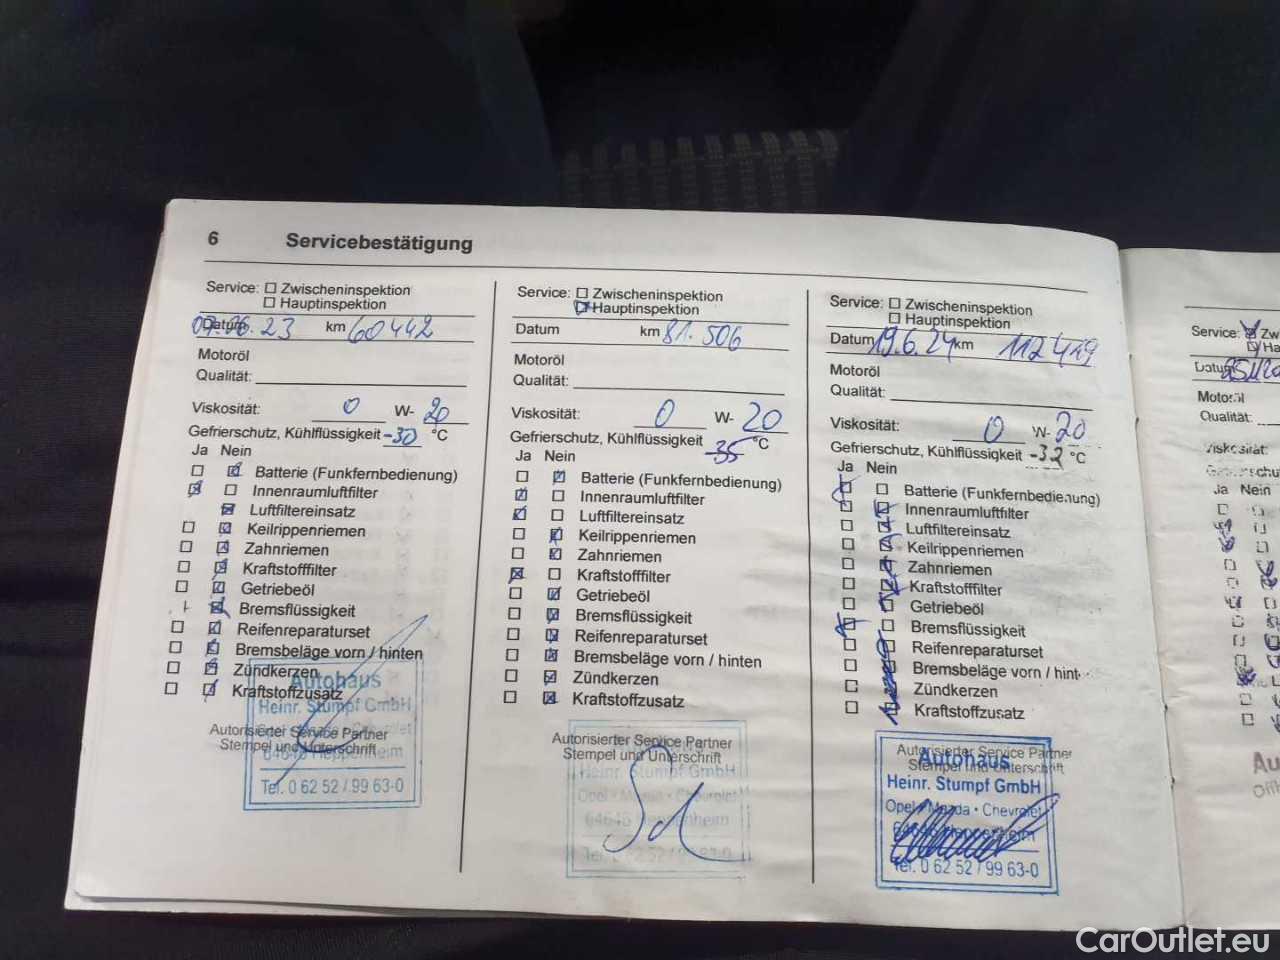 6 Servicebestätigung
Service: Zwischeninspektion
Hauptinspektion
Datum 07.06.23 km 60442
Motoröl
Qualität:
Viskosität: 0 W- 20
Gefrierschutz, Kühlflüssigkeit -30 °C
Ja Nein
Batterie (Funkfernbedienung)
Innenraumluftfilter
Luftfiltereinsatz
Keilrippenriemen
Zahnriemen
Kraftstofffilter
Getriebeöl
Bremsflüssigkeit
Reifenreparaturset
Bremsbeläge vorn / hinten
Zündkerzen
Kraftstoffzusatz
Autorisierter Service Partner
Stempel und Unterschrift
Autohaus
Heinr. Stumpf GmbH
64646 Heppenheim
Tel. 0 62 52 / 99 63-0
Service: Zwischeninspektion
Hauptinspektion
Datum km 81.506
Motoröl
Qualität:
Viskosität: 0 W- 20
Gefrierschutz, Kühlflüssigkeit -35 °C
Ja Nein
Batterie (Funkfernbedienung)
Innenraumluftfilter
Luftfiltereinsatz
Keilrippenriemen
Zahnriemen
Kraftstofffilter
Getriebeöl
Bremsflüssigkeit
Reifenreparaturset
Bremsbeläge vorn / hinten
Zündkerzen
Kraftstoffzusatz
Autorisierter Service Partner
Stempel und Unterschrift
Heinr. Stumpf GmbH
Opel • Mazda • Chevrolet
64646 Heppenheim
Tel. 0 62 52 / 99 63-0
Service: Zwischeninspektion
Hauptinspektion
Datum 19.6.24 km 112419
Motoröl
Qualität:
Viskosität: 0 W- 20
Gefrierschutz, Kühlflüssigkeit -32 °C
Ja Nein
Batterie (Funkfernbedienung)
Innenraumluftfilter
Luftfiltereinsatz
Keilrippenriemen
Zahnriemen
Kraftstofffilter
Getriebeöl
Bremsflüssigkeit
Reifenreparaturset
Bremsbeläge vorn / hint
Zündkerzen
Kraftstoffzusatz
Autorisierter Service Partner
Stempel und Unterschrift
Autohaus
Heinr. Stumpf GmbH
Opel • Mazda • Chevrolet
64646 Heppenheim
Tel. 0 62 52 / 99 63-0
Service: Zw
Ha
Datum
Motoröl
Qualität:
Viskosität:
Ja Nein
Au
CarOutlet.eu